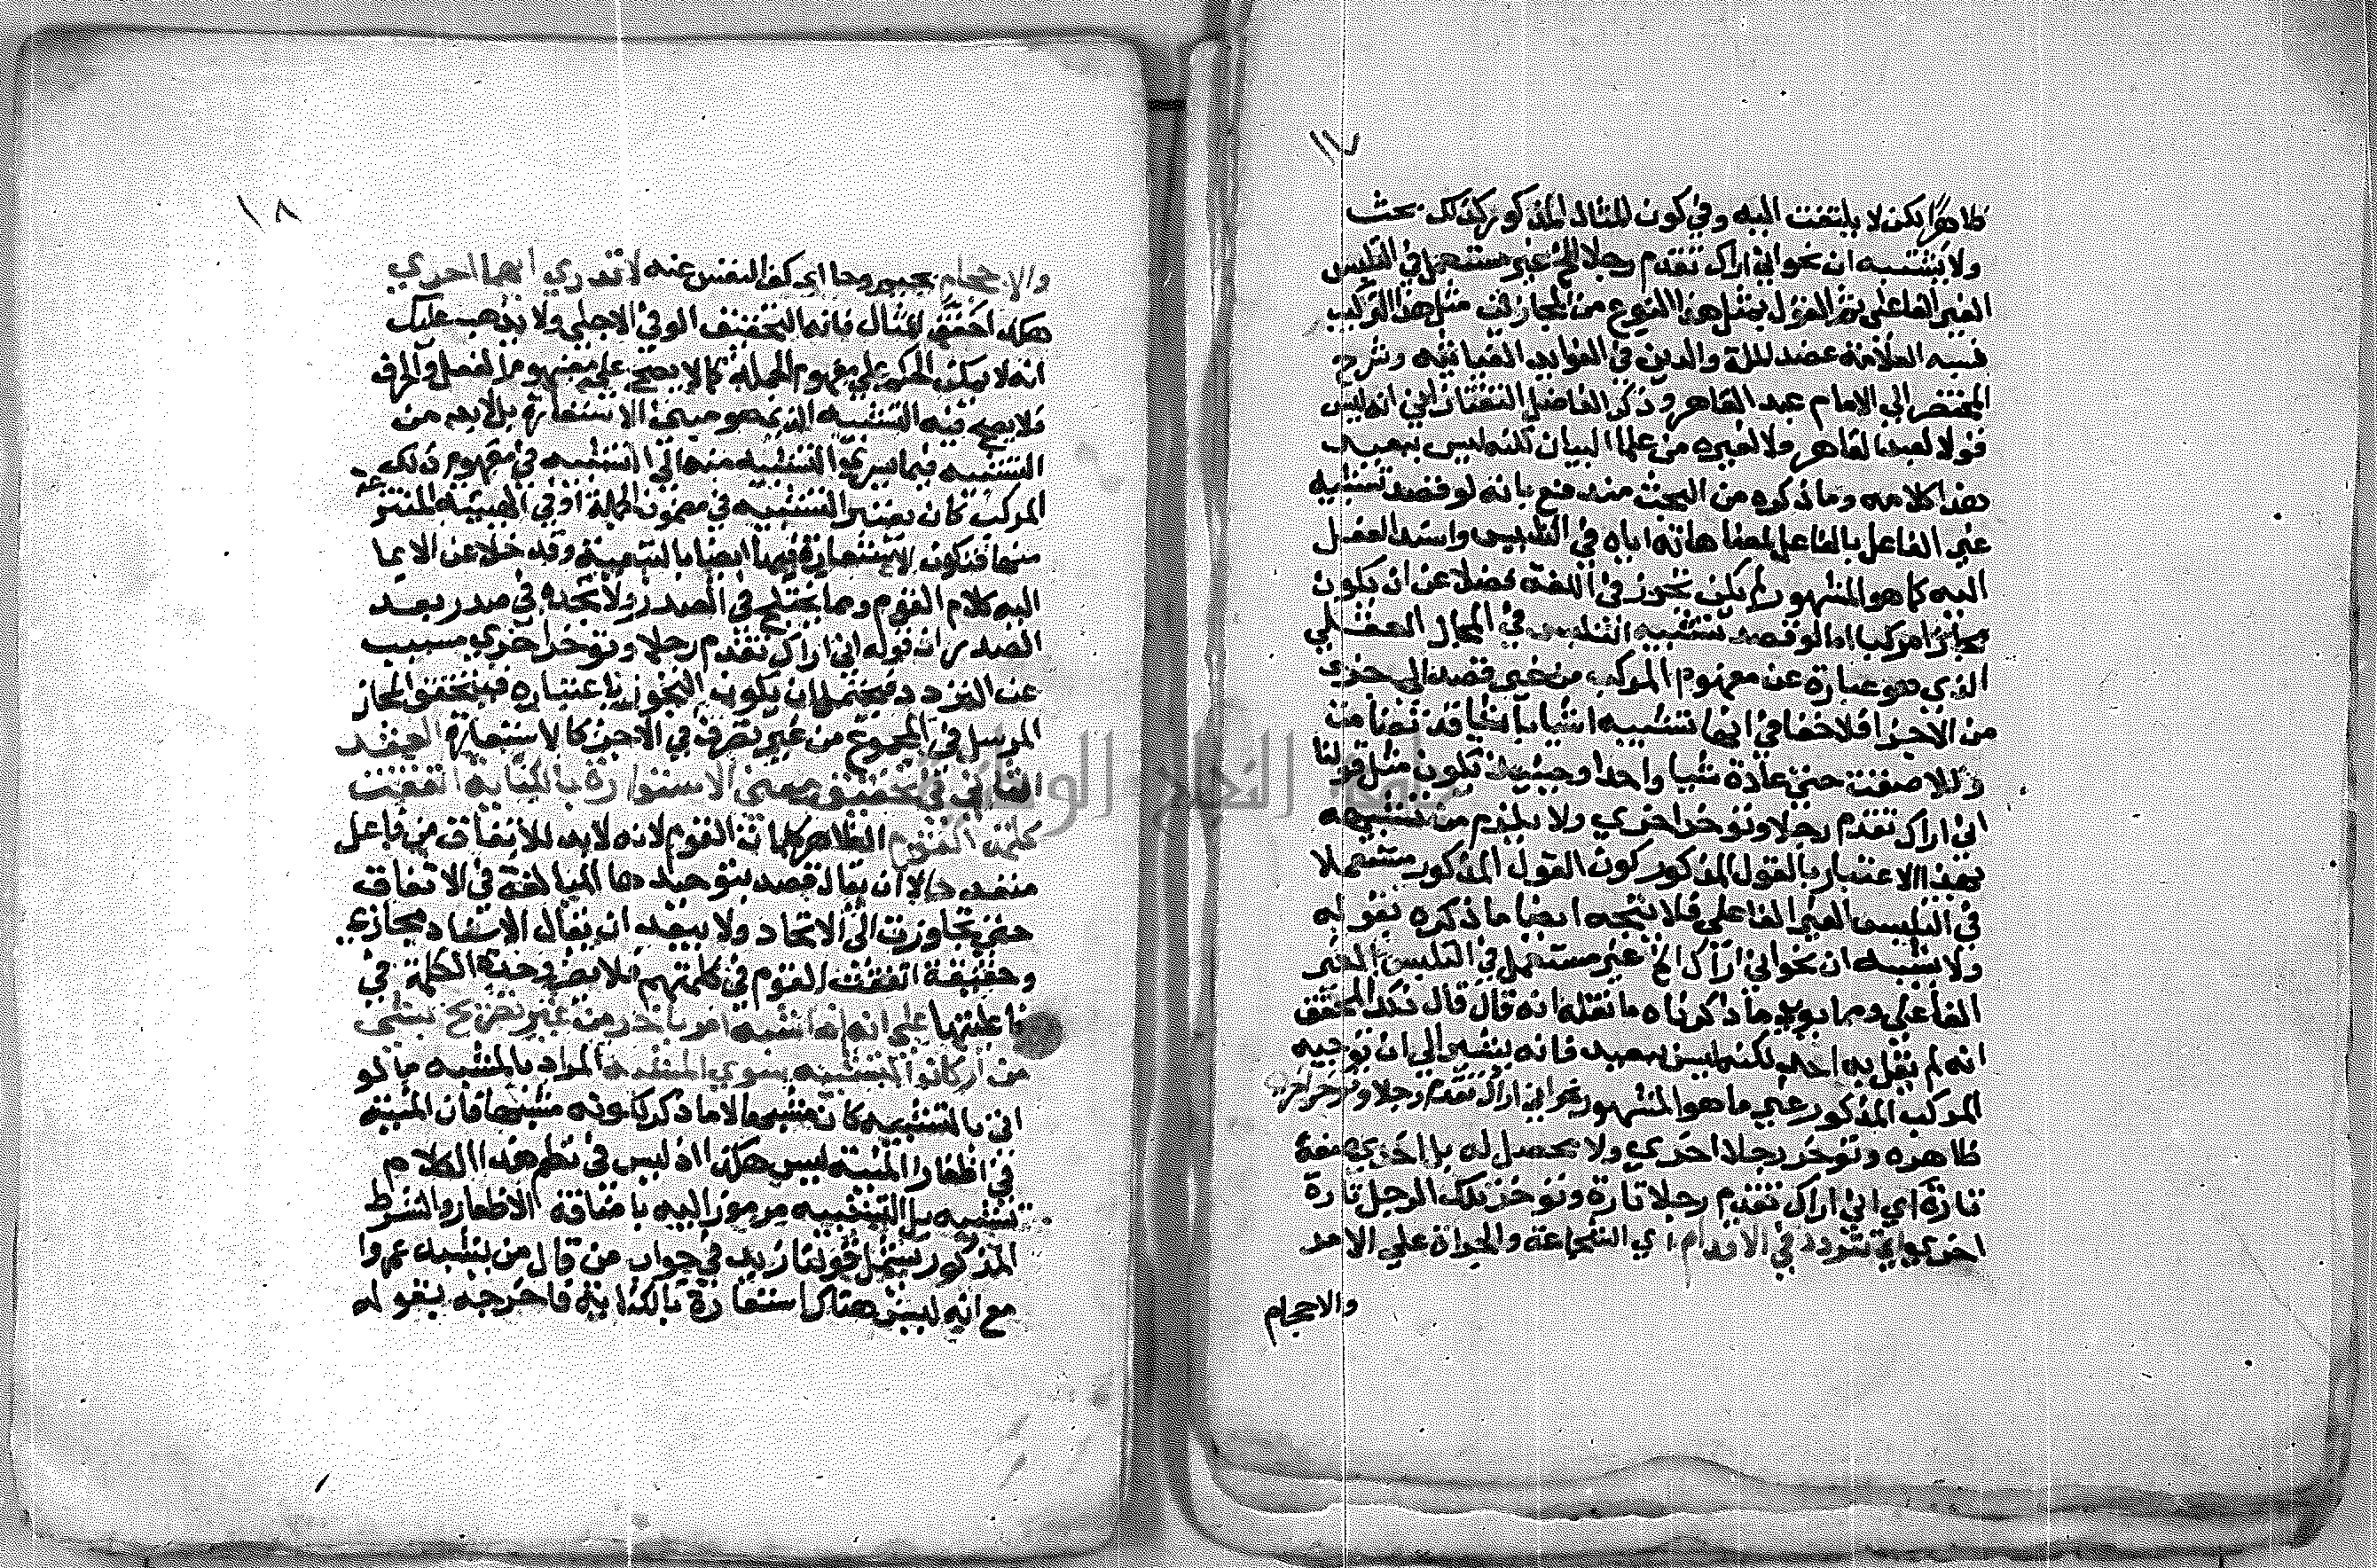 ١٧
ظاهرا لكن لا يلتفت اليه وفي كون المثال المذكور كذلك بحث
ولا يشتبه ان نحو اني اراك تقدم رجلا الخ غير مستعمل في التلبس
الغير الفاعلي ثم القول بمثل هذا النوع من المجاز في مثل هذا التركيب
نسبه العلامة عضد الملة والدين في الفوايد الغياثيه وشرح
المختصر الي الامام عبد القاهر وذكر الفاضل التفتازاني انه ليس
قولا لعبد القاهر ولا لغيره من علما البيان لكنه ليس ببعيد
هذا كلامه وما ذكره من البحث مندفع بانه لو قصد تشبيه
غير الفاعل بالفاعل لمضاهاته اياه في التلبس واسند الفعل
اليه كما هو المشهور لم يكن تجوز في اللغة فضلا عن ان يكون
مجازا مركبا اما لو قصد تشبيه التلبس في المجاز العقلي
الذي هو عبارة عن مفهوم المركب من غير قصد الي جزء
من الاجزا فلا خفا في انها تشبيه اشيا باشيا قد تضامت
وتلاصقت حتى عادة شيا واحدا وحينيذ تكون مثل قولنا
اني اراك تقدم رجلا وتوخر اخري ولا يلزم من تشبيهه
بهذا الاعتبار بالقول المذكور كون القول المذكور مستعملا
في التلبس الغير الفاعلي فلا يتجه ايضا ما ذكره بقوله
ولا يشتبه ان نحو اني اراك الخ غير مستعمل في التلبس الغير
الفاعلي ومما يويد ما ذكرناه ما نقله انه قال قال ذلك المحقق
انه لم يقل به احد لكنه ليس ببعيد فانه يشير الي ان توجيه
المركب المذكور غير ما هو المشهور نحو اني اراك تقدم رجلا وتوخر اخري
ظاهره وتوخر رجلا اخري ولا محصل له بل اخري صفة
تارة اي اني اراك تقدم رجلا تارة وتوخر تلك الرجل تارة
اخري اي تتردد في الاقدام اي الشجاعة والجراة علي الامر
والاحجام
١٨
والاحجام بجيم وحا اي كف النفس عنه لا تدري ايهما احري
هكذا حقق المثال فانه التحقيق الوفي الاجلي ولا يذهب عليك
انه لا يمكن الحكم علي مفهوم الجملة كما لا يصح علي مفهوم الفعل والحرف
فلا يصح فيه التشبيه الذي هو مبني الاستعارة بل لا بد من
التشبيه فيما يسري التشبيه منه الي التشبيه في مفهوم ذلك
المركب كان يعتبر التشبيه في مضمون الجملة او في الهيئة المنتزعة
منها فتكون الاستعارة فيها ايضا بالتبعية وقد خلا عن الايما
اليه كلام القوم ومما يختلج في الصدر ولا تجده في صدر بعد
الصدر ان قوله اني اراك تقدم رجلا وتوخر اخري مسبب
عن التردد فيحتمل ان يكون التجوز باعتباره فيتحقق المجاز
المرسل في المجموع من غير تصرف في الاجزا كالاستعارة العقد
الثاني في تحقيق معني الاستعارة بالكناية اتفقت
كلمة القوم الظاهر كلمات القوم لانه لا بد للاتفاق من فاعل
متعدد الا ان يقال قصد بتوحيدها المبالغة في الاتفاق
حتى تجاوزت الي الاتحاد ولا يبعد ان يقال الاسناد مجازي
وحقيقة اتفقت القوم في كلمتهم فلا يضر وحدة الكلمة في
فاعليتها علي انه اذا شبه امر باخر من غير تصريح بشي
من اركان التشبيه سوي المشبه المراد بالمشبه ما لو
اتي بالتشبيه كان مشبها لا ما ذكر لكونه مشبها فان المنية
في اظفار المنية ليس هكذا اذ ليس في نظم هذا الكلام
تشبيه بل التشبيه مرموز اليه باضافة الاظفار والشرط
المذكور يشمل قولنا زيد في جواب من قال من يشبه عمروا
مع انه ليس هناك استعارة بالكناية فاخرجه بقوله